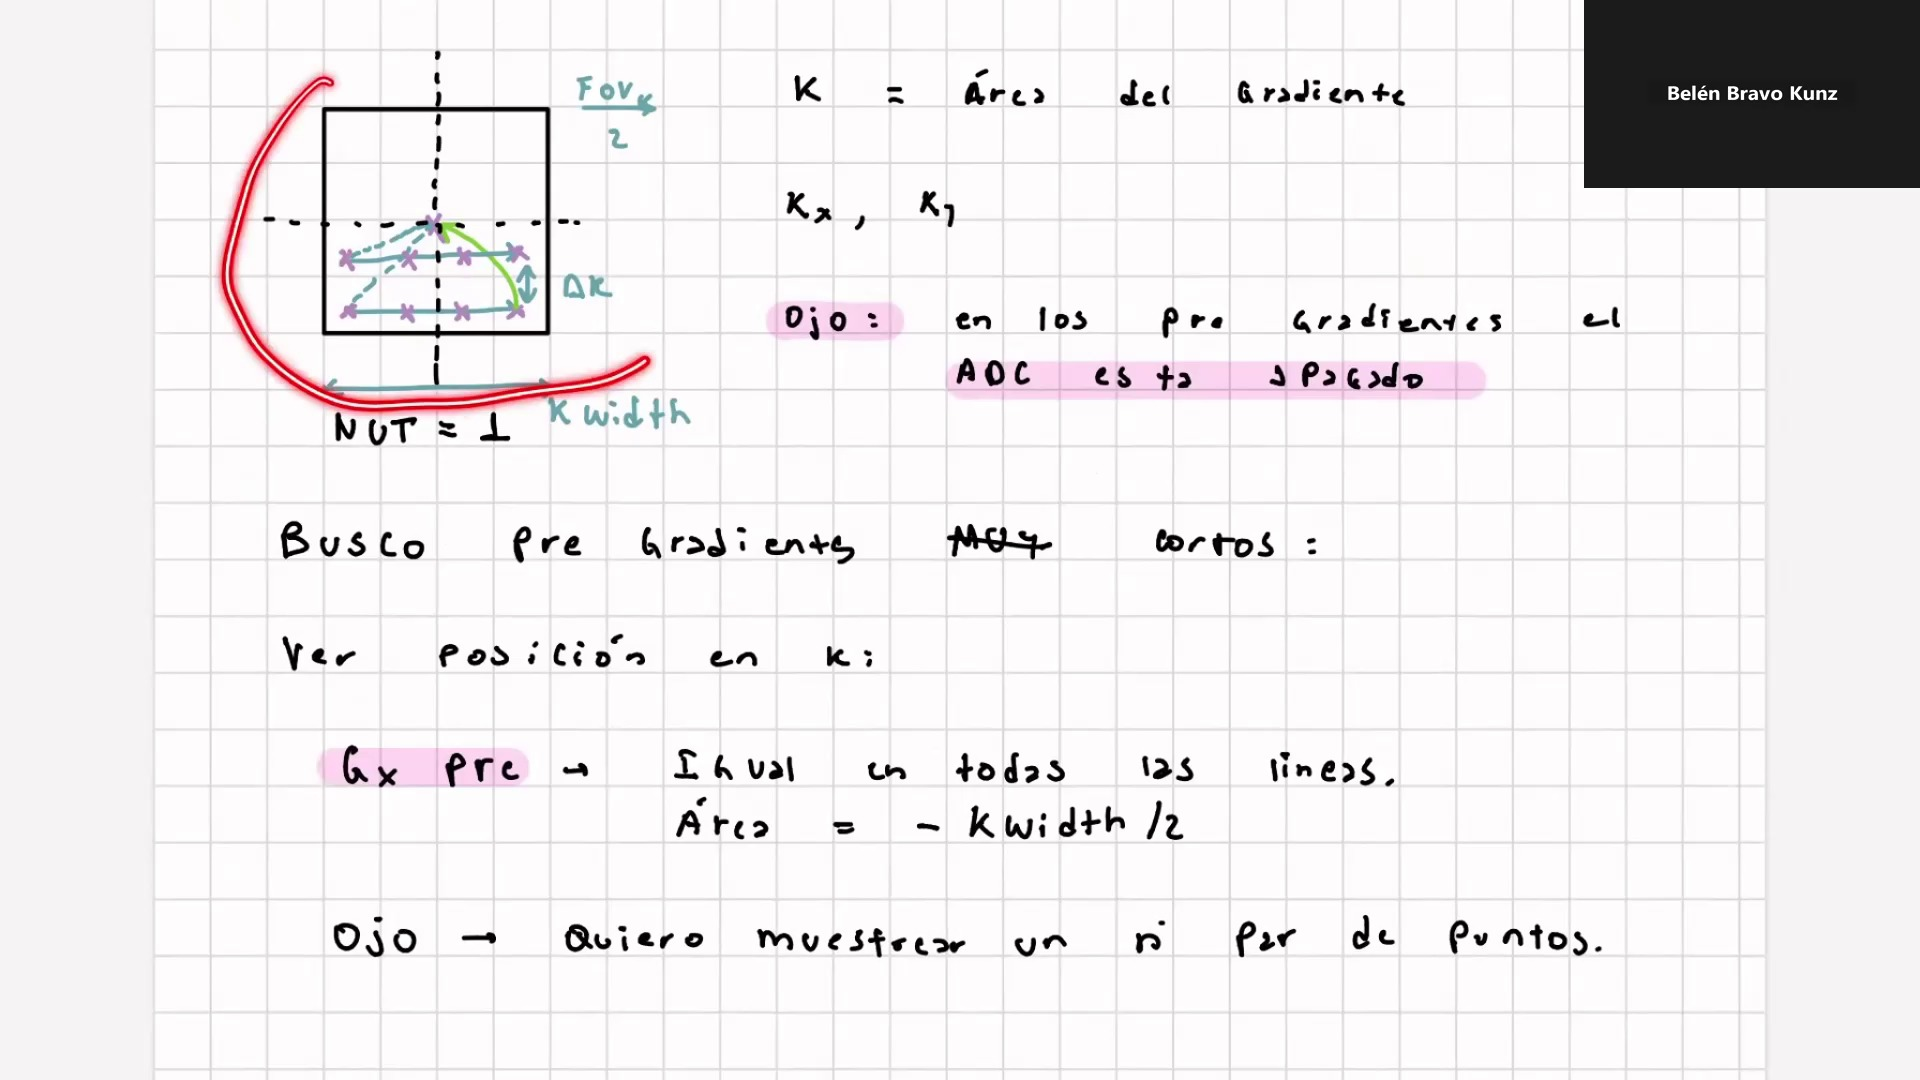 FOVk
2
Δk
k width
NUT = 1
K = Área del Gradiente
Kx, Ky
Ojo: en los pre gradientes el
ADC esta apagado
Belén Bravo Kunz
Busco pre gradients MUY cortos:
Ver posición en k:
Gx pre → Igual en todas las líneas.
Área = - K width /2
Ojo → Quiero muestrear un ñ par de puntos.